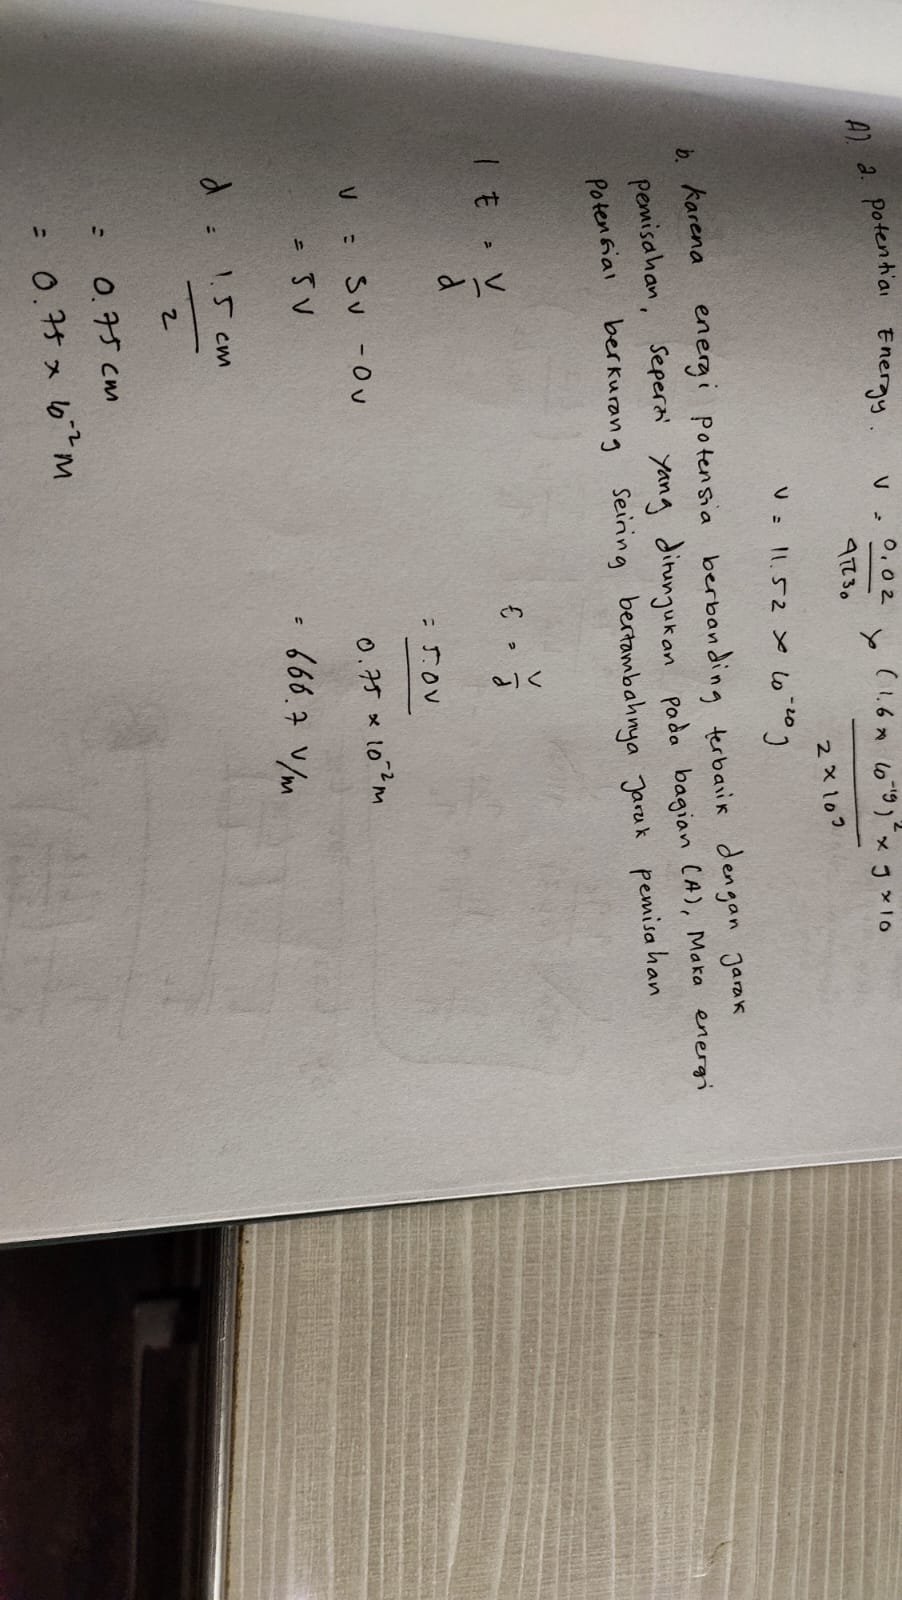 A). 2. potential Energy. V = 0,02 / 4π3₀ x (1.6 x 10⁻¹⁹)² x 9 x 10 / 2 x 10⁹
V = 11.52 x 10⁻²⁰ J
b. karena energi potensia berbanding terbaik dengan jarak
pemisahan, seperti yang ditungukan pada bagian (A), Maka energi
potensial berkurang seiring bertambahnya jarak pemisahan
1 E = V/d
V = 5V - 0V
= 5V
d = 1.5 cm / 2
= 0.75 cm
= 0.75 x 10⁻² M
E = V/d
= 5.0V / 0.75 x 10⁻² M
= 666.7 V/m